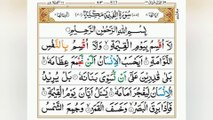 سُورَةُ الْقِيٰمَةِ مَكِّيَّةٌ
بِسْمِ اللّٰهِ الرَّحْمٰنِ الرَّحِيْمِ
لَاۤ اُقْسِمُ بِيَوْمِ الْقِيٰمَةِ وَلَاۤ اُقْسِمُ بِالنَّفْسِ
اللَّوَّامَةِ اَيَحْسَبُ الْاِنْسَانُ اَلَّنْ نَّجْمَعَ عِظَامَهٗ
بَلٰى قٰدِرِيْنَ عَلٰۤى اَنْ نُّسَوِّيَ بَنَانَهٗ بَلْ يُرِيْدُ
الْاِنْسَانُ لِيَفْجُرَ اَمَامَهٗ يَسْـَٔلُ اَيَّانَ يَوْمُ الْقِيٰمَةِ
فَاِذَا بَرِقَ الْبَصَرُ وَخَسَفَ الْقَمَرُ وَجُمِعَ الشَّمْسُ